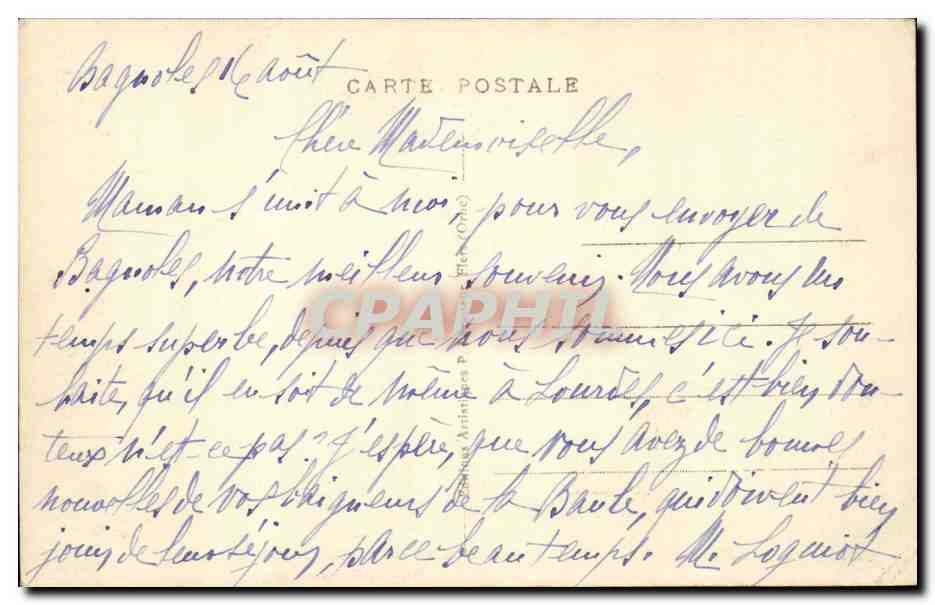 Bagnoles 16 août
CARTE POSTALE
Chère Mademoiselle,
Maman s'unit à moi, pour vous envoyer de
Bagnoles, notre meilleur souvenir. Nous avons un
temps superbe, depuis que nous sommes ici. Je sou-
haite, qu'il en soit de même à Lourdes, c'est bien dou-
teux n'est-ce pas? J'espère, que vous avez de bonnes
nouvelles de vos baigneurs de la Baule, qui doivent bien
jouir de leur séjour, par ce beau temps. M.
Editions Artistiques P. Flers (Orne)
CPAPHIL